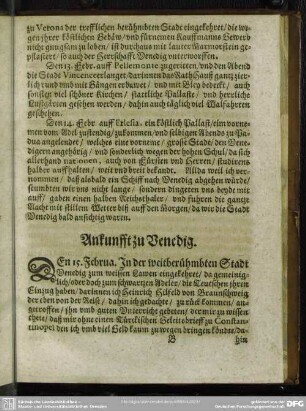 zu Verona der trefflichen berühmbten Stadt eingekehret/ die we-
gen jhrer köstlichen Gebäw/ vnd fürnemen Kauffmanns Gewerb
nicht gnugsam zu loben/ ist durchaus mit lauter Marmorstein ge-
pflastert/ so auch der Herrschafft Venedig vnterworffen.
Den 13. Febr. auff
zugereiset/ vnd den Abend
die Stadt Vincenz erlanget/ darinnen das Rath Hauß gantz zier-
lich rund vnd mit Gängen erbawet/ vnd mit Bley bedeckt/ auch
sonsten viel schöner Kirchen/ stattliche Pallaste/ vnd herrliche
Lustgärten gesehen werden/ dahin auch täglich viel Walfahrten
geschehen.
Den 14. Febr. auff
ein köstlich Pallast/ ein vorne-
men vom Adel zustendig/ zukommen/ vnd selbigen Abend zu Pa-
dua angelendet/ welches eine vorneme/ grosse Stadt/ den Vene-
digern angehörig/ vnd sonderlich wegen der hohen Schul/ da sich
allerhand nationen, auch von Fürsten vnd Herren/ studierens
halber auffhalten/ weit vnd breit bekandt. Allda weil ich ver-
nommen/ daß alsbald ein Schiff nach Venedig abgehen würde/
seumbten wir vns nicht lange/ sondern dingeten vns beyde mit
auff/ gaben einen halben Reichsthaler/ vnd fuhren die gantze
Nacht mit stillem Wetter biß auff den Morgen/ da wir die Stadt
Venedig bald ansichtig waren.
Ankunfft zu Venedig.
DEn 15. Februa. In der weitberühmbten Stadt
Venedig zum weißen Lawen eingekehret/ da gemeinig-
lich/ oder doch zum schwartzen Adeler/ die Teutschen jhren
Einzug haben/ darinnen ich Heinrich Hilfeld von Braunschweig
der eben von der Reiß/ dahin ich gedachte/ zu rück kommen/ an-
getroffen/ jhn vmb guten Vnterrichtung gebeten/ der mir zu wissen
thete/ daß mir ohne einen Türckischen Geleitsbrieff zu Constan-
tinopel den ich vmb viel Geld kaum zu wegen bringen köndte/ da-
B
hin